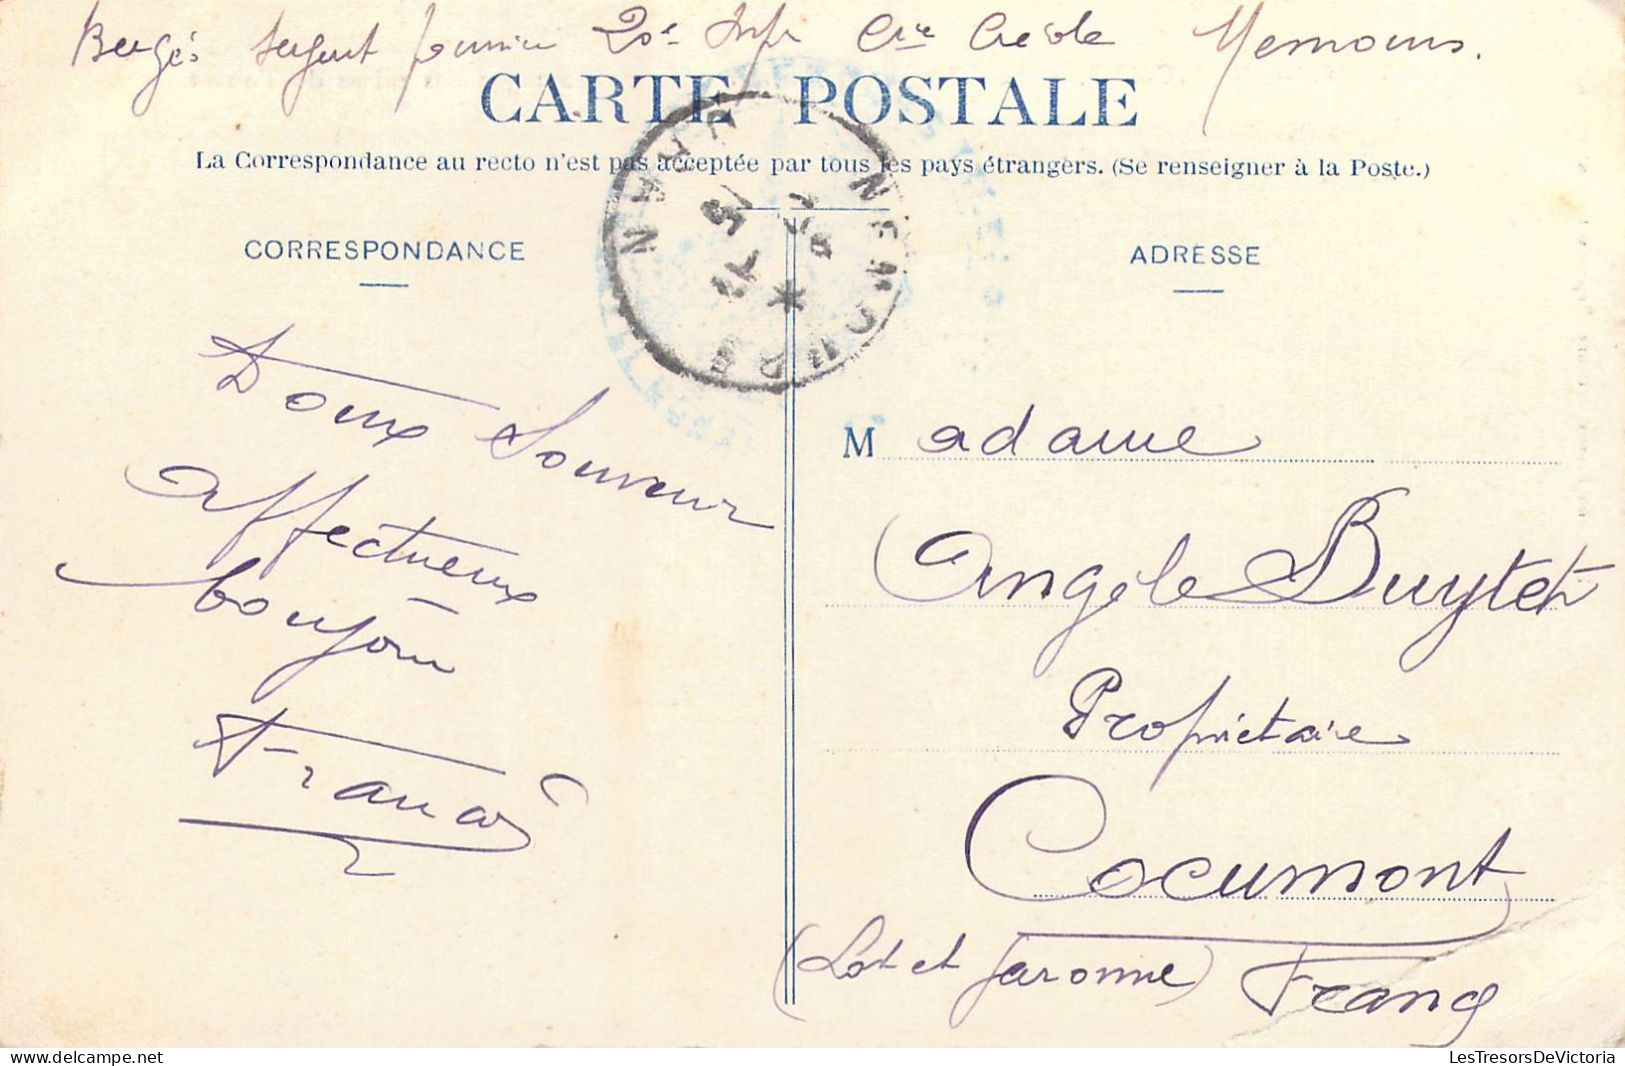 Bergès Sergent fourrier 20e Infie Cie Créole Nemours.
CARTE POSTALE
La Correspondance au recto n'est pas acceptée par tous les pays étrangers. (Se renseigner à la Poste.)
NEMOURS
ORAN
CORRESPONDANCE
ADRESSE
Doux Souvenir
affectueux
bonjour
Madame
Angèle Buytet
Propriétaire
Cocumont
(Lot et Garonne) France
LesTresorsDeVictoria.com